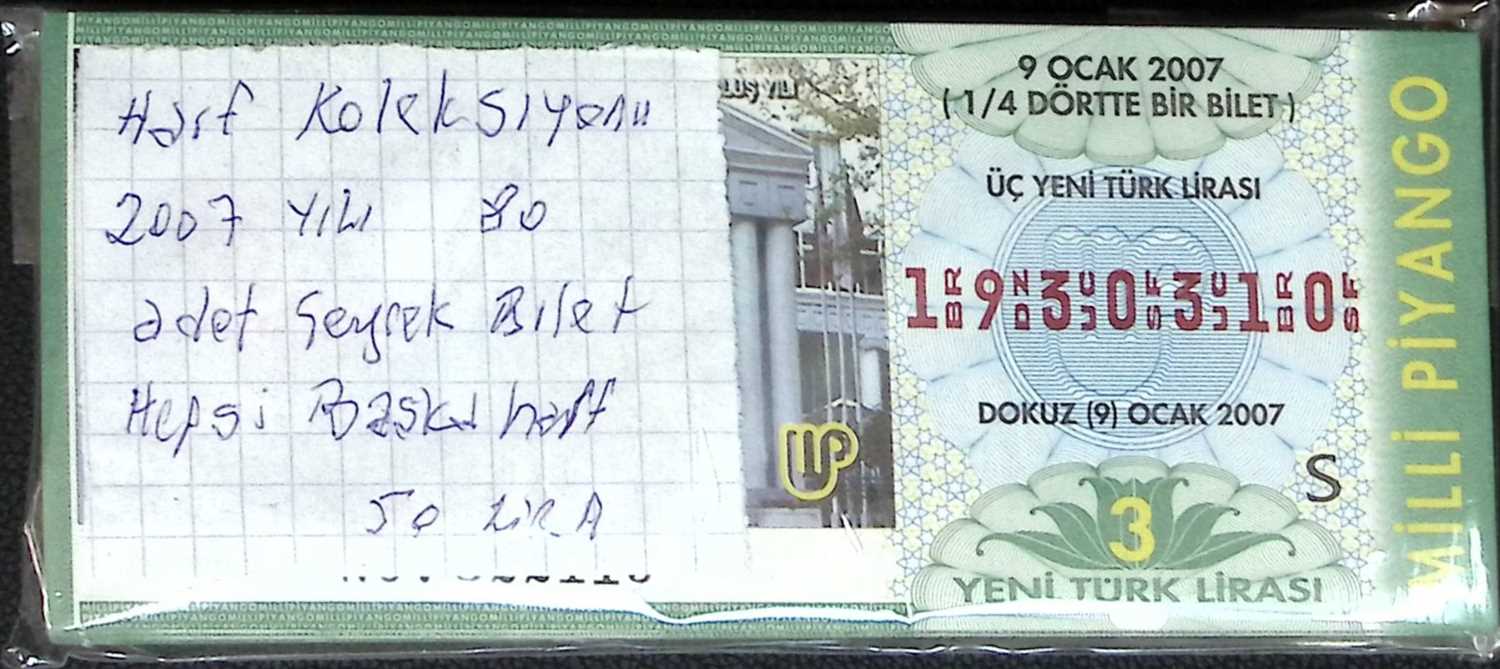 Harf Koleksiyonu
2007 YILI 80
adet Seyrek Bilet
Hepsi Başka harf
50 LİRA
LUŞ YILI
9 OCAK 2007
( 1/4 DÖRTTE BİR BİLET )
ÜÇ YENİ TÜRK LİRASI
1 BR 9 DZ 3 ÜÇ 0 SF 3 ÜÇ 1 BR 0 SF
DOKUZ (9) OCAK 2007
S
3
YENİ TÜRK LİRASI
MİLLİ PİYANGO
MİLLİPİYANGOMİLLİPİYANGOMİLLİPİYANGO